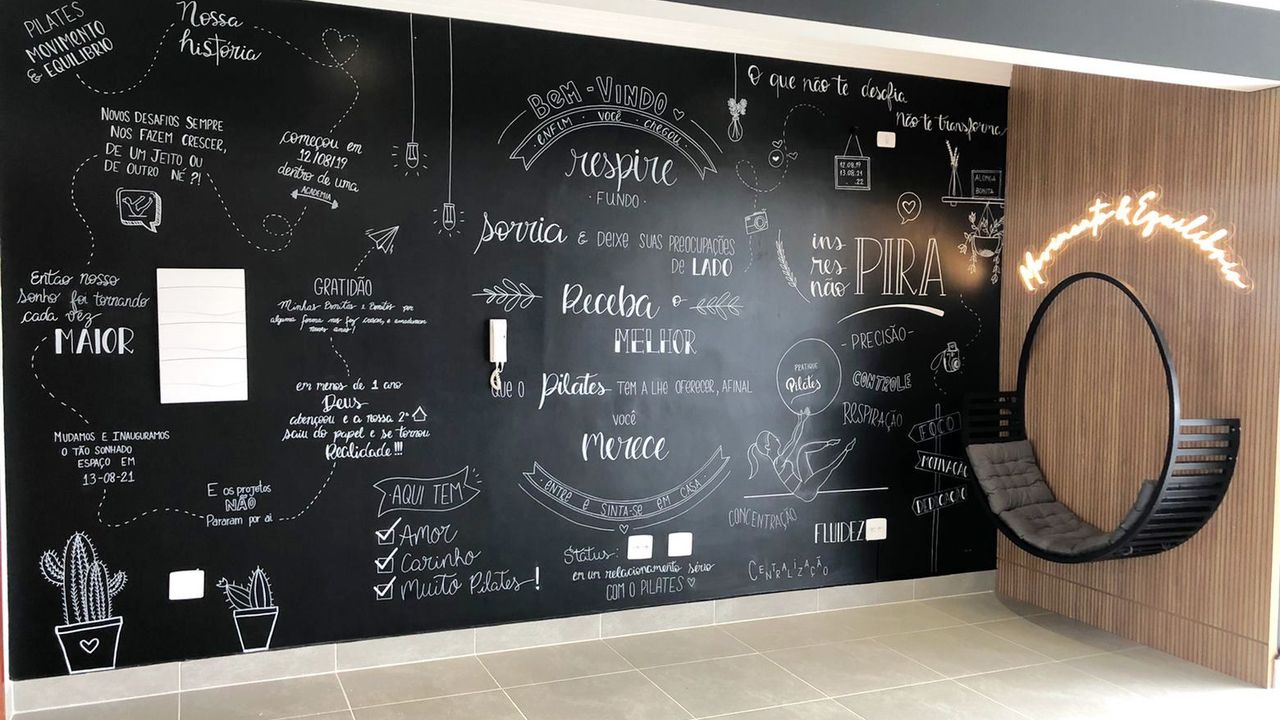 PILATES
MOVIMENTO
& EQUILÍBRIO
Nossa
história
NOVOS DESAFIOS SEMPRE
NOS FAZEM CRESCER,
DE UM JEITO OU
DE OUTRO NÉ ?!
começou em
12/08/19
dentro de uma
ACADEMIA
Então nosso
sonho foi tornando
cada vez
MAIOR
GRATIDÃO
Minhas Bonitas e Bonitos por
alguma forma nos fez crescer, e amadurecer
nesses anos!
em menos de 1 ano
Deus
abençoou e a nossa 2ª
saiu do papel e se tornou
Realidade!!!
MUDAMOS E INAUGURAMOS
O TÃO SONHADO
ESPAÇO EM
13-08-21
E os projetos
NÃO
Pararam por aí
AQUI TEM
Amor
Carinho
Muito Pilates!
BEM-VINDO
ENFIM VOCÊ CHEGOU
respire
FUNDO
sorria & DEIXE SUAS PREOCUPAÇÕES
DE LADO
Receba o
MELHOR
QUE O Pilates TEM A LHE OFERECER, AFINAL
VOCÊ
Merece
ENTRE E SINTA-SE EM CASA
Status:
em um relacionamento sério
COM O PILATES
O que não te desafia
Não te transforma
12.08.19
13.08.21
.22
ALONGA
BONITA
ins
res
não
PIRA
PRATIQUE
Pilates
PRECISÃO
CONTROLE
RESPIRAÇÃO
FOCO
MOTIVAÇÃO
DEDICAÇÃO
CONCENTRAÇÃO
FLUIDEZ
CENTRALIZAÇÃO
Movimento & Equilíbrio